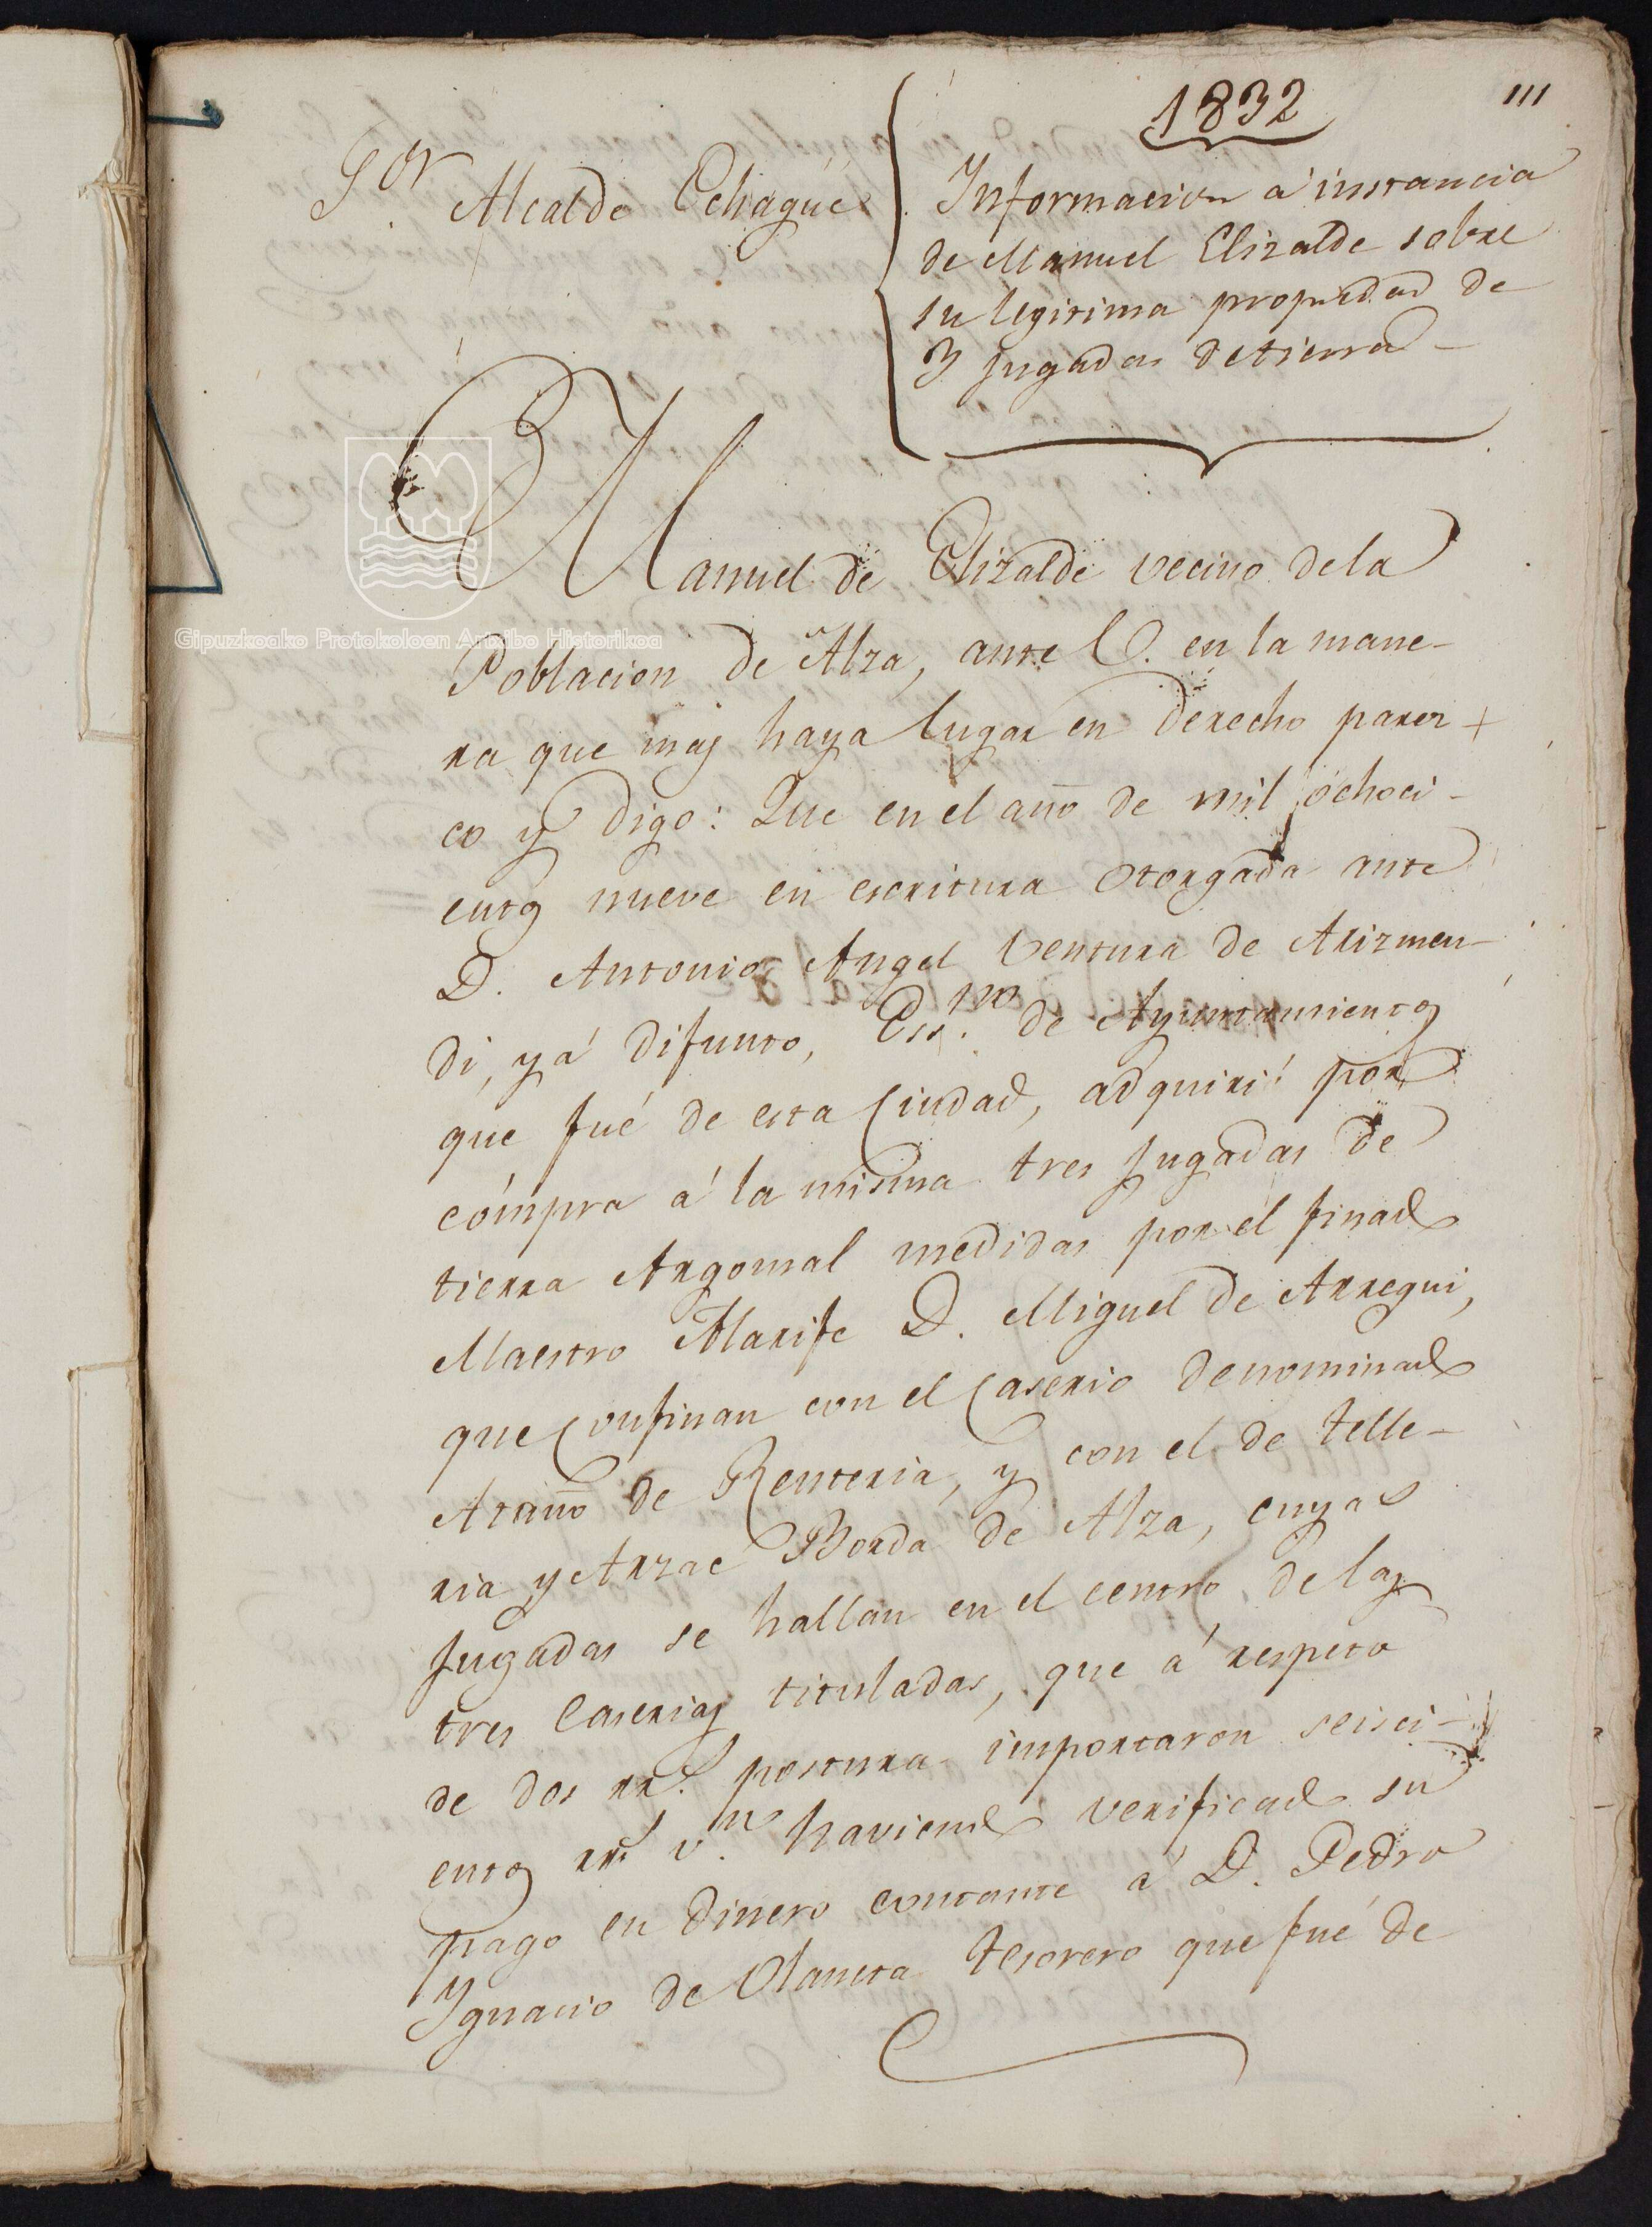 1832
111
S.or Alcalde Echagüe
Informacion á instancia
de Manuel Elizalde sobre
su legitima propiedad de
3 jugadas de tierra
Manuel de Elizalde vecino dela
Poblacion de Alza, ante V. en la mane-
ra que mas haya lugar en derecho parez+
co y digo: Que en el año de mil ochoci-
entos nueve en escritura otorgada ante
D. Antonio Angel Ventura de Arizmen-
di, yá difunto, Ess.no de Ayuntamiento
que fué de esta Ciudad, adquirí por
cómpra á la misma tres jugadas de
tierra Argomal medidas por el finado
Maestro Alarife D. Miguel de Arregui,
que Confinan con el Caserio denominado
Araño de Renteria, y con el de Telle-
ria y Arzac Borda de Alza, cuyas
jugadas se hallan en el centro de las
tres Caserias tituladas, que á respeto
de dos rr.s postura importaron seisci-
entos rr.s v.n haviendo verificado su
pago en dinero contante á D. Pedro
Ygnacio de Olaneta tesorero que fué de
Gipuzkoako Protokoloen Artxibo Historikoa